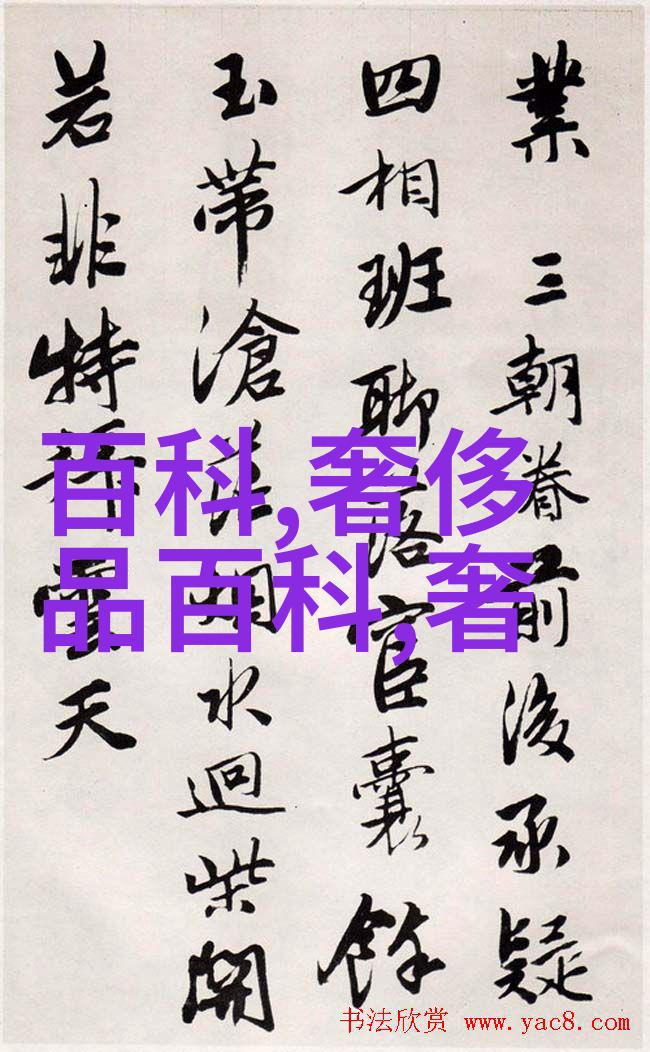 業 三朝眷前後承疑
四相班聊落官囊餘
玉帶滄茫烟水迴柴關
若非特操雲天
百科,奢侈
品百科,奢
书法欣赏 www.yac8.com